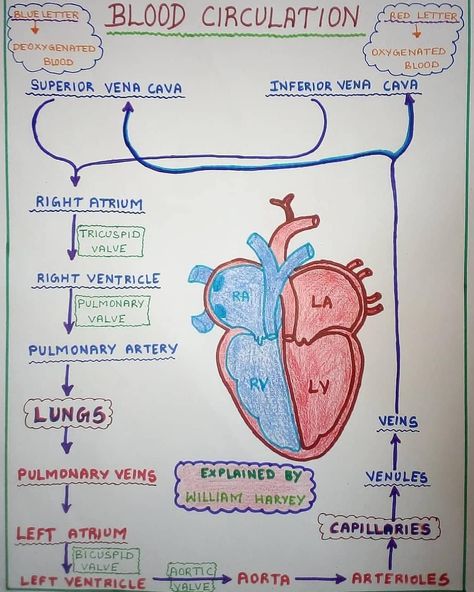 BLOOD CIRCULATION
BLUE LETTER
DEOXYGENATED
BLOOD
RED LETTER
OXYGENATED
BLOOD
SUPERIOR VENA CAVA
INFERIOR VENA CAVA
RIGHT ATRIUM
TRICUSPID
VALVE
RIGHT VENTRICLE
PULMONARY
VALVE
PULMONARY ARTERY
LUNGS
PULMONARY VEINS
LEFT ATRIUM
BICUSPID
VALVE
LEFT VENTRICLE
AORTIC
VALVE
AORTA
ARTERIOLES
CAPILLARIES
VENULES
VEINS
RA
LA
RV
LV
EXPLAINED BY
WILLIAM HARVEY